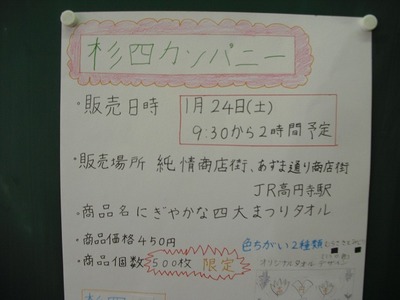 杉四カンパニー
・販売日時 1月24日(土)
9:30から2時間予定
・販売場所 純情商店街、あずま通り商店街
JR高円寺駅
・商品名 にぎやかな四大まつりタオル
・商品価格 450円
色ちがい2種類
・商品個数 500枚 限定
オリジナルタオル デザイン
杉四